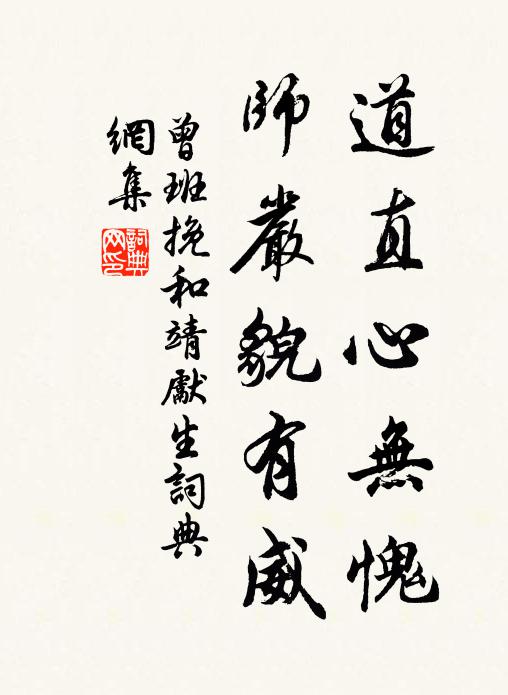 道直心無愧
師嚴貌有威
曾班挽和靖獻生詞典
網集
詞典
网印